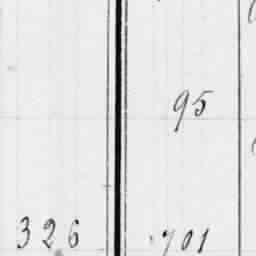 95
326 701